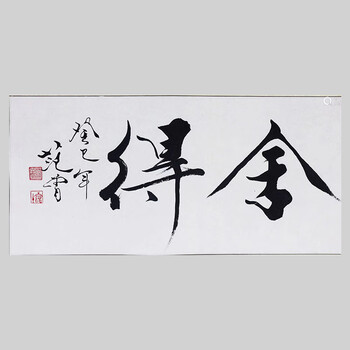 舍得
癸巳年
范曾